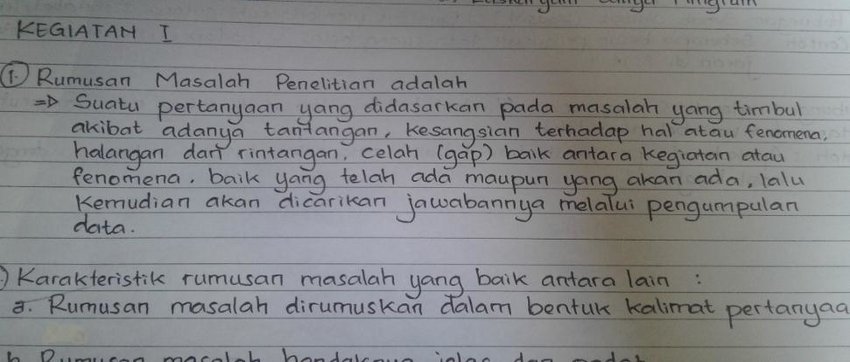 KEGIATAN I
1. Rumusan Masalah Penelitian adalah
⇒ Suatu pertanyaan yang didasarkan pada masalah yang timbul
akibat adanya tantangan, kesangsian terhadap hal atau fenomena,
halangan dari rintangan, celah (gap) baik antara kegiatan atau
fenomena, baik yang telah ada maupun yang akan ada, lalu
kemudian akan dicarikan jawabannya melalui pengumpulan
data.
) Karakteristik rumusan masalah yang baik antara lain :
a. Rumusan masalah dirumuskan dalam bentuk kalimat pertanyaa
b. Rumusan masalah hendaknya jelas dan padat